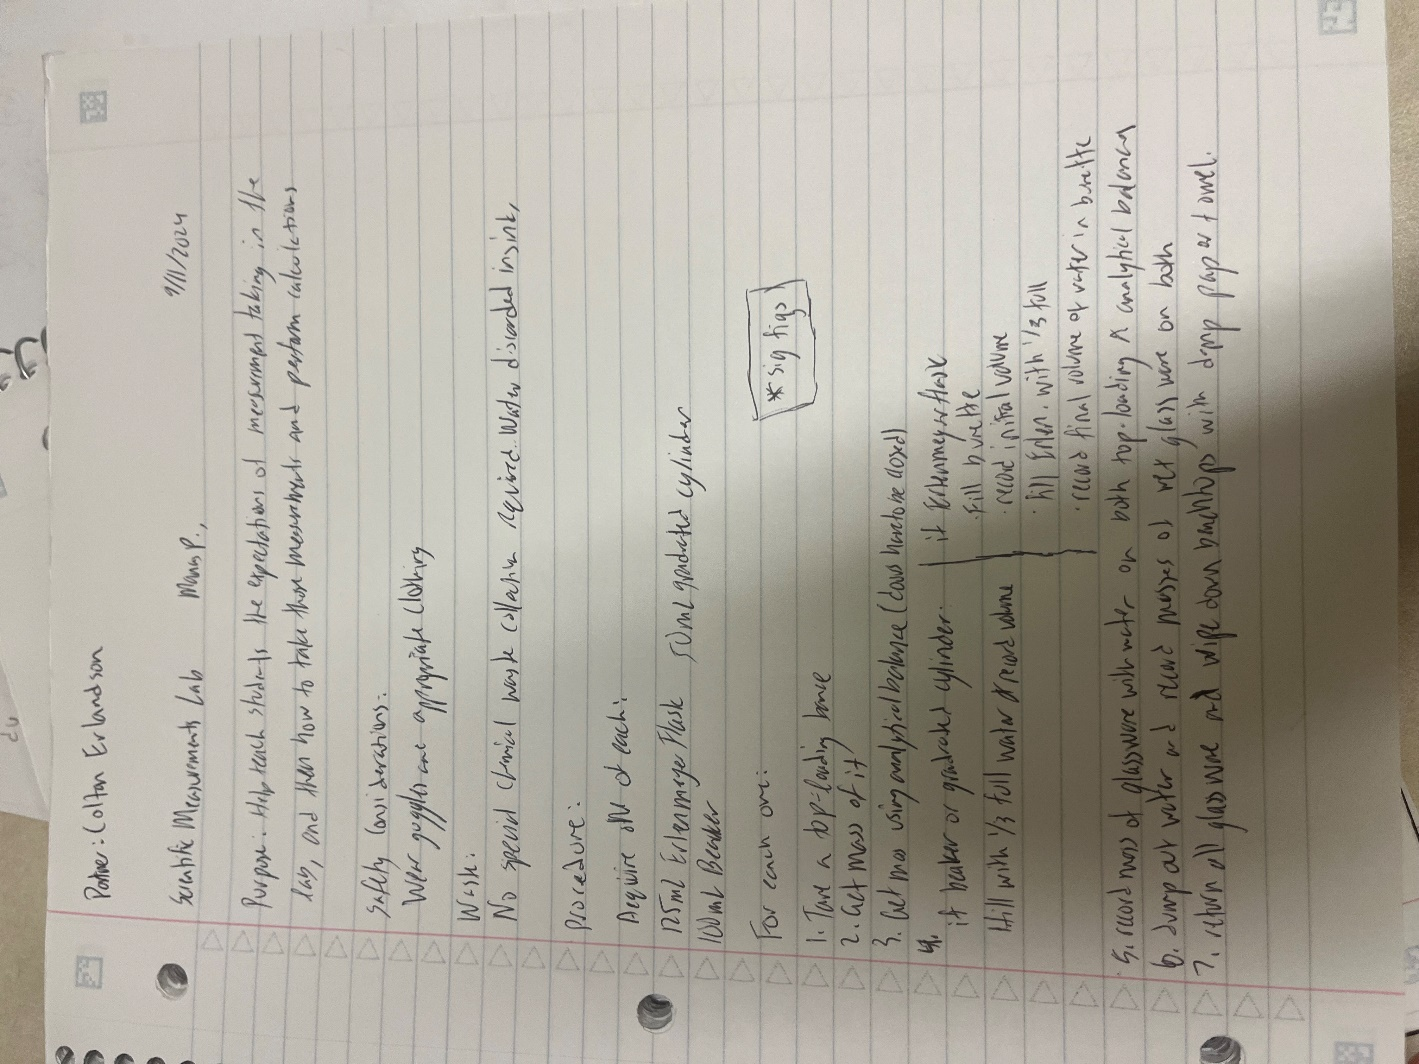 Partner: Colton Erlandson
Scientific Measurements Lab Manas P. 9/11/2024
Purpose: Help teach students the expectations of measurement taking in the
lab, and then how to take those measurements and perform calculations
Safety Considerations:
Wear goggles and appropriate clothing
Waste:
No special chemical waste collection required. Water discarded in sink.
Procedure:
Acquire one of each:
125 mL Erlenmeyer Flask 50 mL graduated cylinder
100 mL Beaker
For each one: * sig figs
1. Tare a top-loading balance
2. Get mass of it
3. Get mass using analytical balance (doors have to be closed)
4.
if beaker or graduated cylinder:
fill with 1/3 full water & record volume
if Erlenmeyer flask
· Fill burette
· record initial volume
· fill Erlen. with 1/3 full
· record final volume of water in burette
5. record mass of glassware with water on both top-loading & analytical balances
6. dump out water and record masses of wet glassware on both
7. return all glassware and wipe down benchtops with damp paper towel.
du